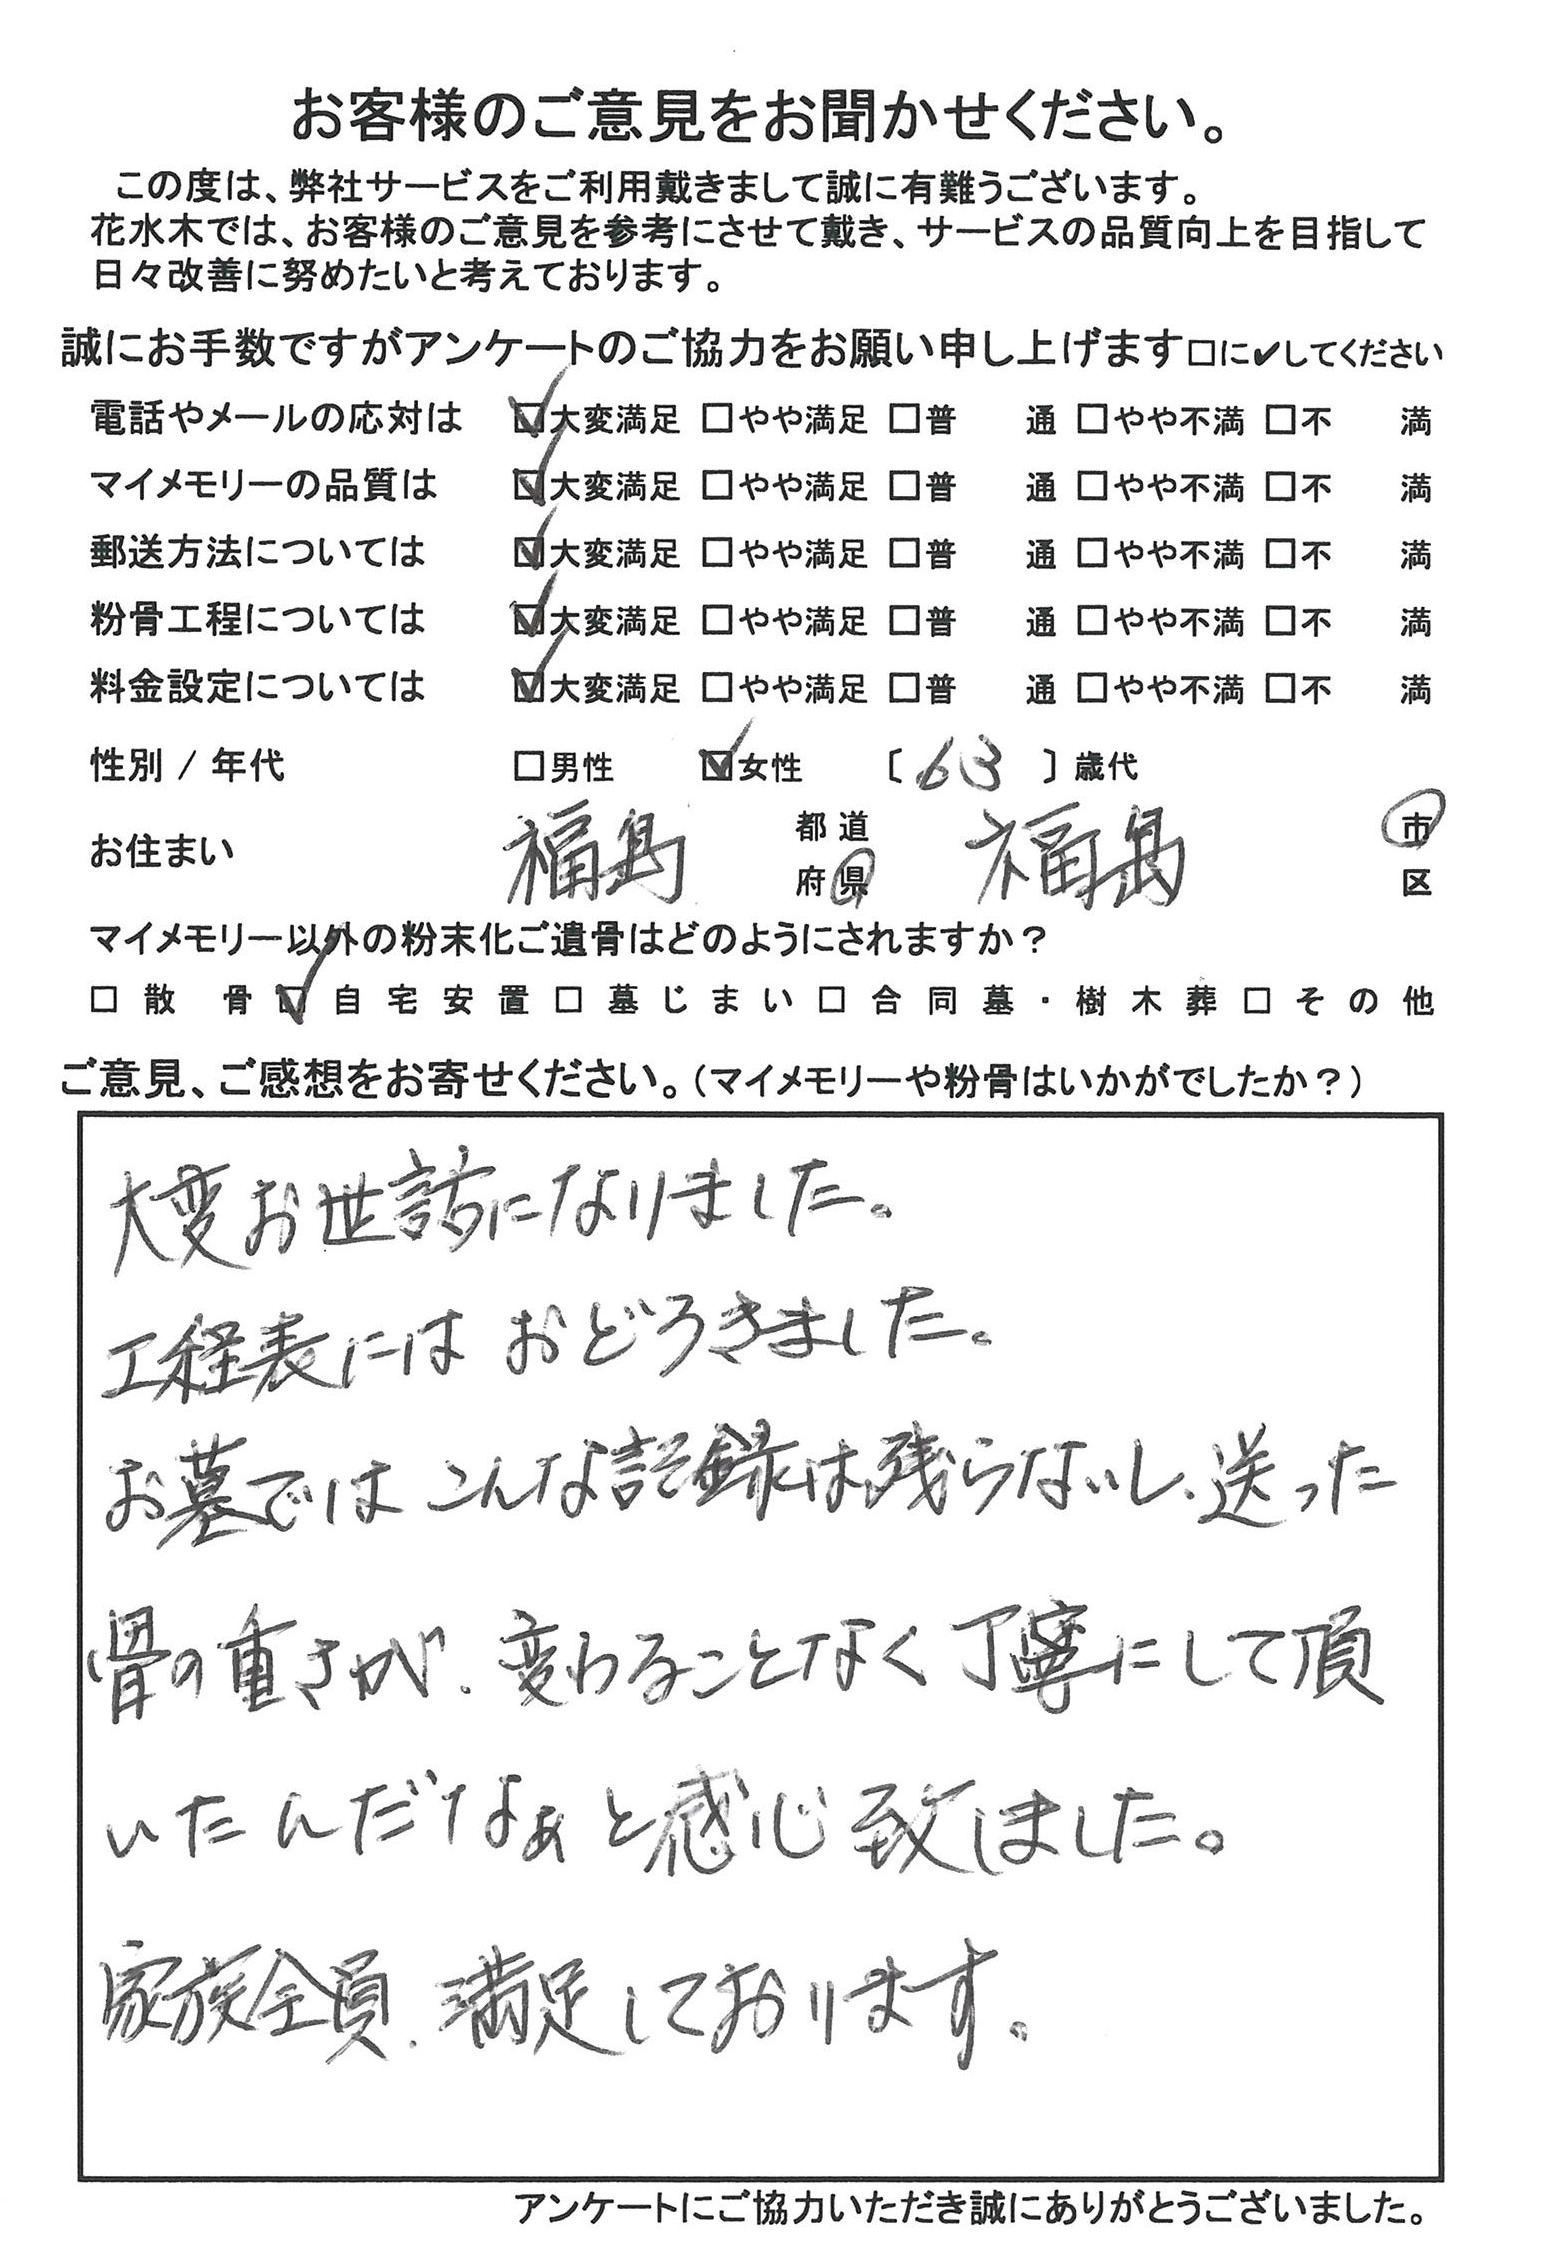 お客様のご意見をお聞かせください。
この度は、弊社サービスをご利用戴きまして誠に有難うございます。
花水木では、お客様のご意見を参考にさせて戴き、サービスの品質向上を目指して
日々改善に努めたいと考えております。
誠にお手数ですがアンケートのご協力をお願い申し上げます□に✔してください
電話やメールの応対は ☑大変満足 □やや満足 □普 通 □やや不満 □不 満
マイメモリーの品質は ☑大変満足 □やや満足 □普 通 □やや不満 □不 満
郵送方法については ☑大変満足 □やや満足 □普 通 □やや不満 □不 満
粉骨工程については ☑大変満足 □やや満足 □普 通 □やや不満 □不 満
料金設定については ☑大変満足 □やや満足 □普 通 □やや不満 □不 満
性別 / 年代 □男性 ☑女性 〔 63 〕歳代
お住まい 福島 都道府県 福島 市区
マイメモリー以外の粉末化ご遺骨はどのようにされますか？
□ 散 骨 ☑ 自宅安置 □ 墓じまい □ 合同墓・樹木葬 □ その他
ご意見、ご感想をお寄せください。（マイメモリーや粉骨はいかがでしたか？）
大変お世話になりました。
工程表には おどろきました。
お墓では こんな記録は残らないし、送った
骨の重さが、変わることなく丁寧にして頂
いたんだなぁと感心致しました。
家族全員、満足しております。
アンケートにご協力いただき誠にありがとうございました。